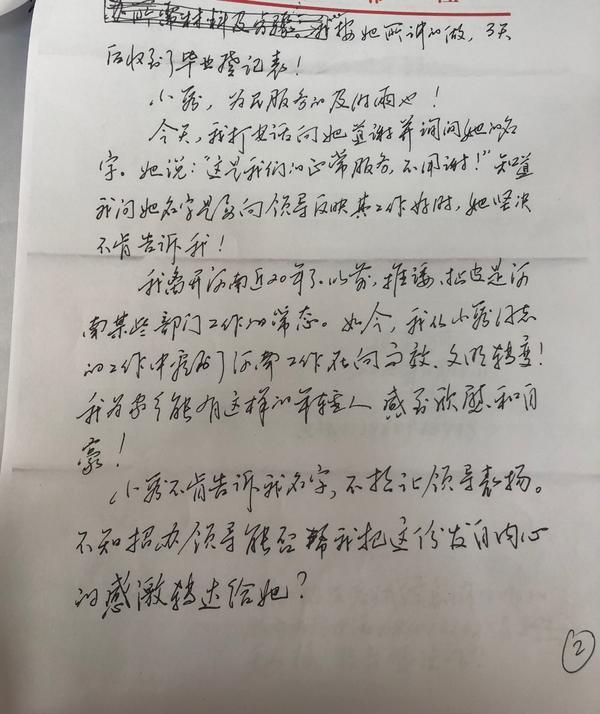 我按她所讲的做，3天
后收到了毕业登记表！
小蔡，为民服务的及时雨也！
今天，我打电话向她道谢并询问她的名
字。她说：“这是我们的正常服务，不用谢！”知道
我问她名字是要向领导反映其工作好时，她坚决
不肯告诉我！
我离开河南近20年了。以前，推诿、扯皮是河
南某些部门工作的常态。如今，我从小蔡同志
的工作中看到了河南工作在向高效、文明转变！
我为家乡能有这样的年轻人感到欣慰和自
豪！
小蔡不肯告诉我名字，不想让领导表扬。
不知招办领导能否帮我把这份发自内心
的感激转达给她？
2